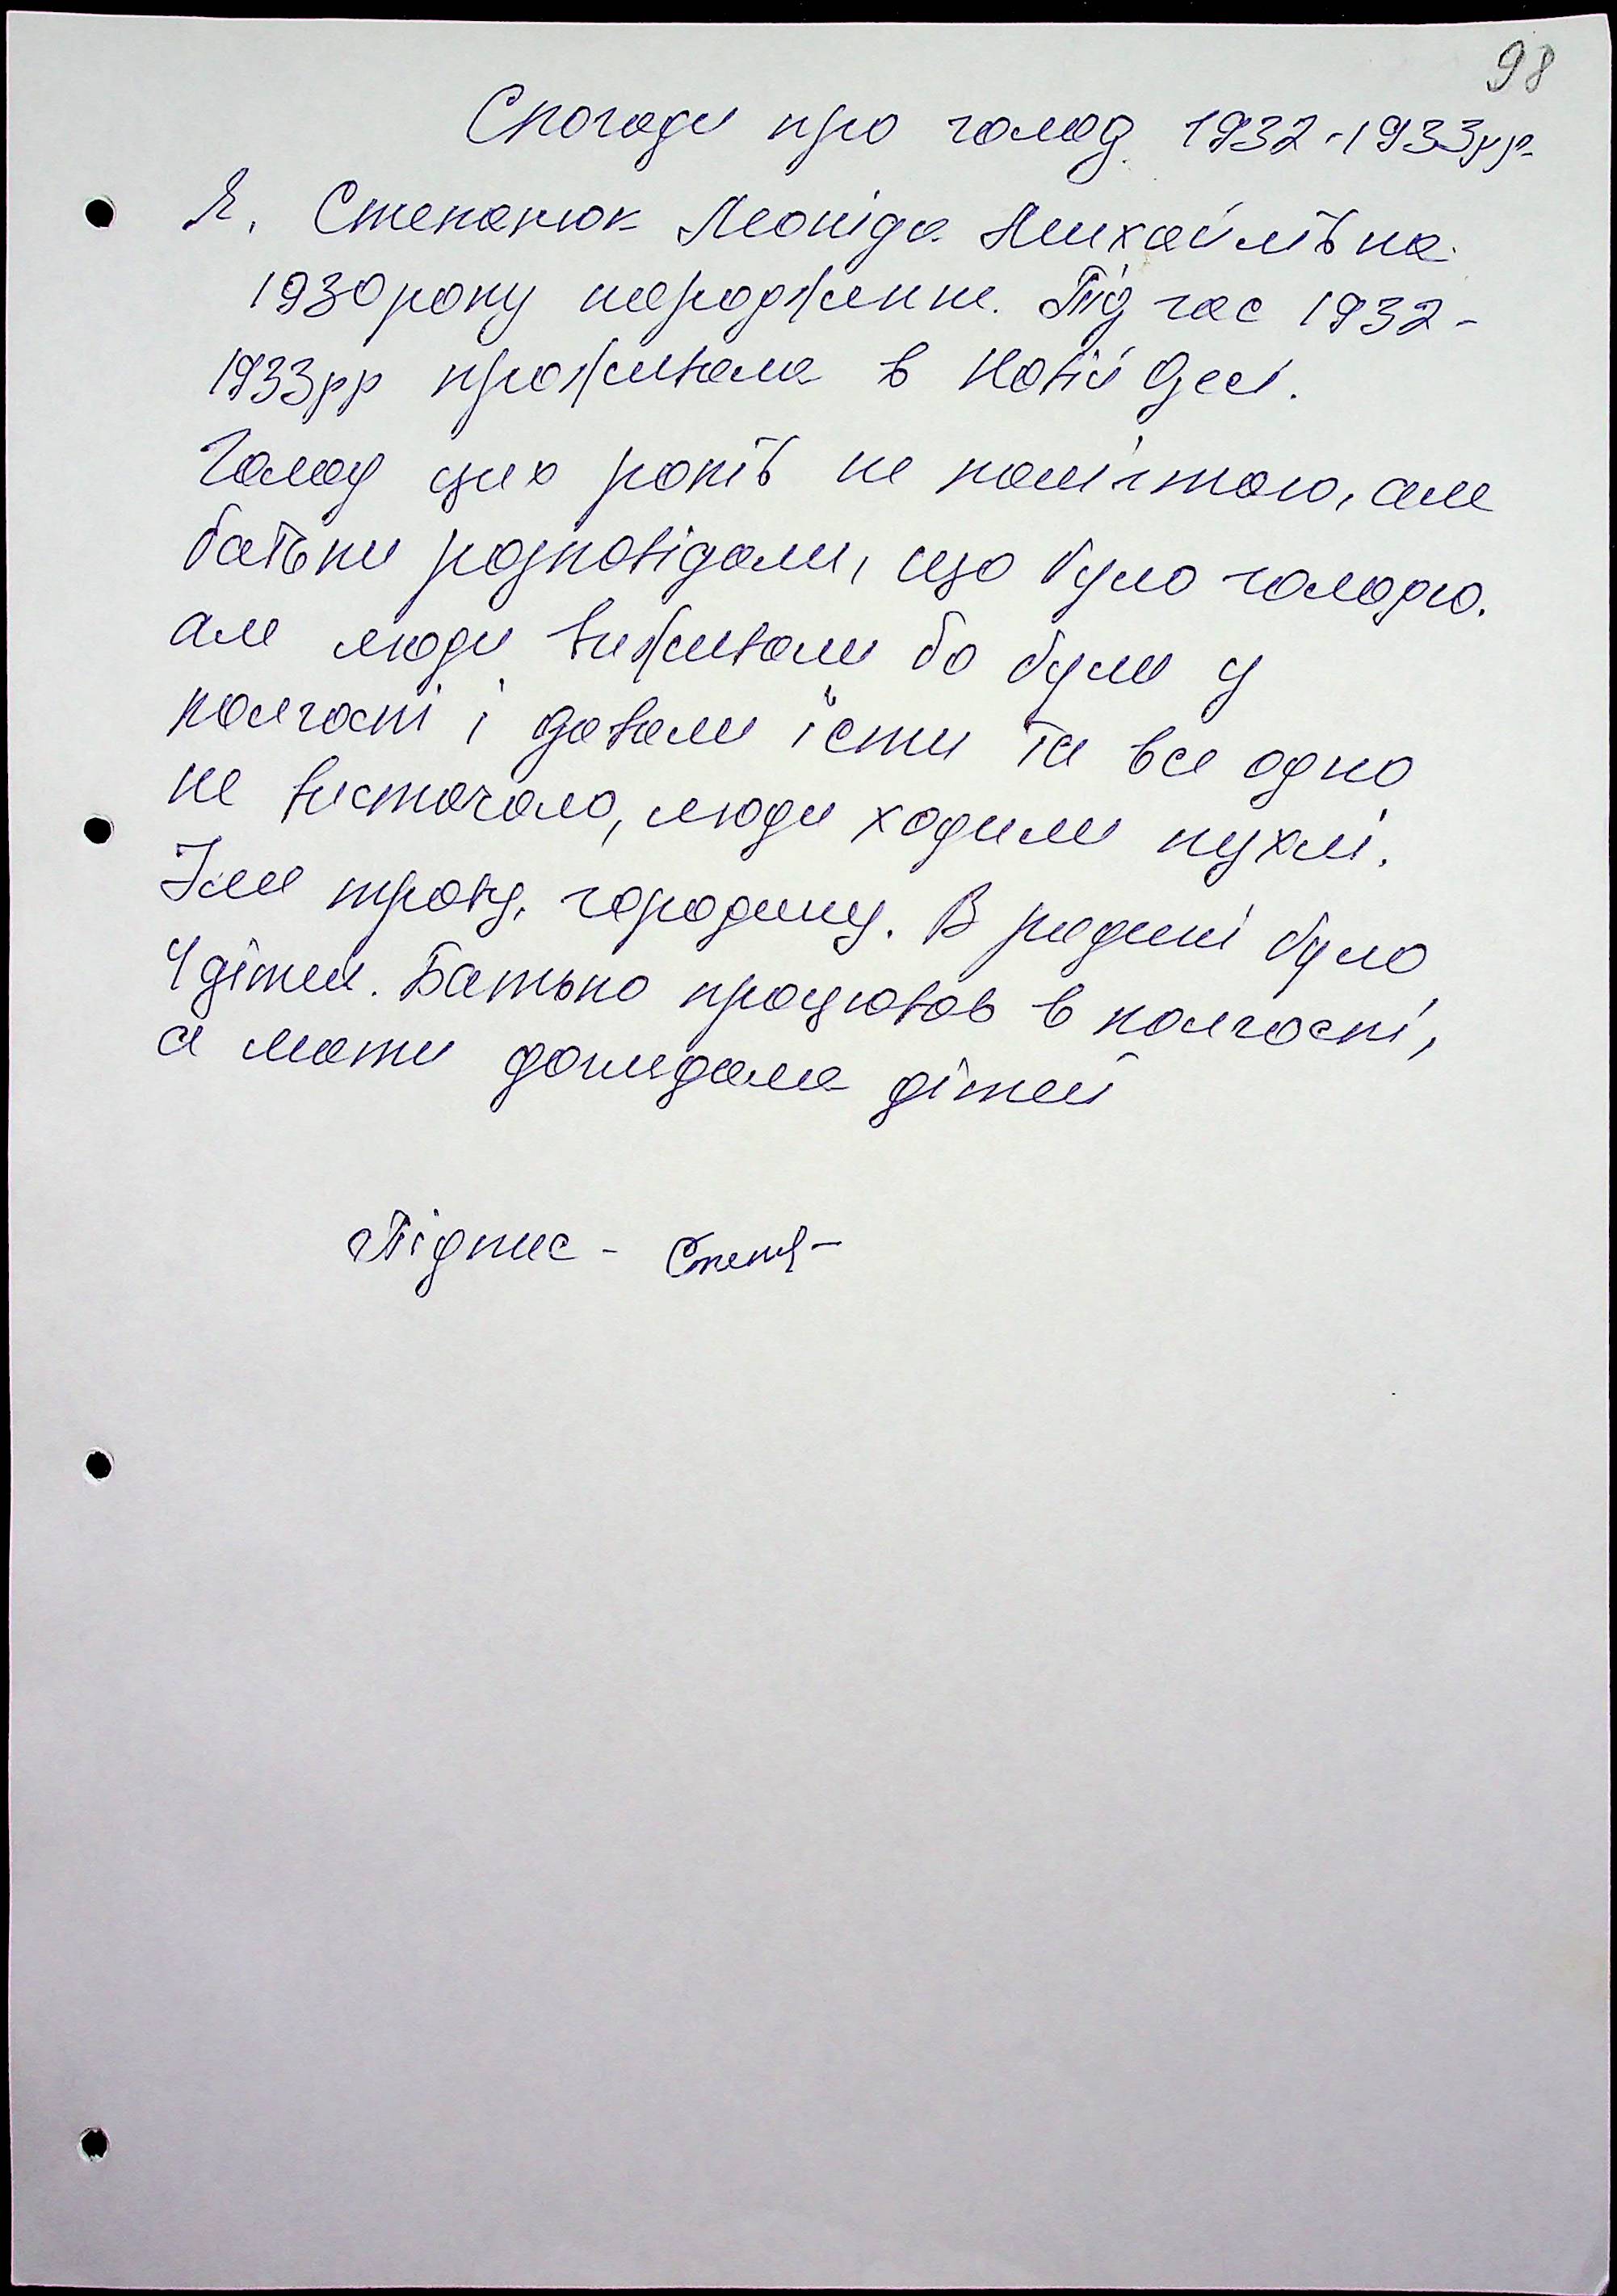 98
Спогади про голод 1932-1933рр.
Я, Степанюк Леоніда Михайлівна
1930 року народження. Під час 1932-
1933рр проживала в Новій Одесі.
Голод цих років не помічтаю, але
батьки розповідали, що було голодно.
але люди виживали бо були у
колгоспі і давали їсти та все одно
не вистачало, люди ходили пухлі.
Їли траву, городину. В родині було
4 дітей. Батько працював в колгоспі,
а мати доглядала дітей
Підпис -